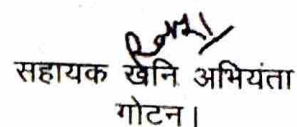 सहायक खनि अभियंता
गोटन।